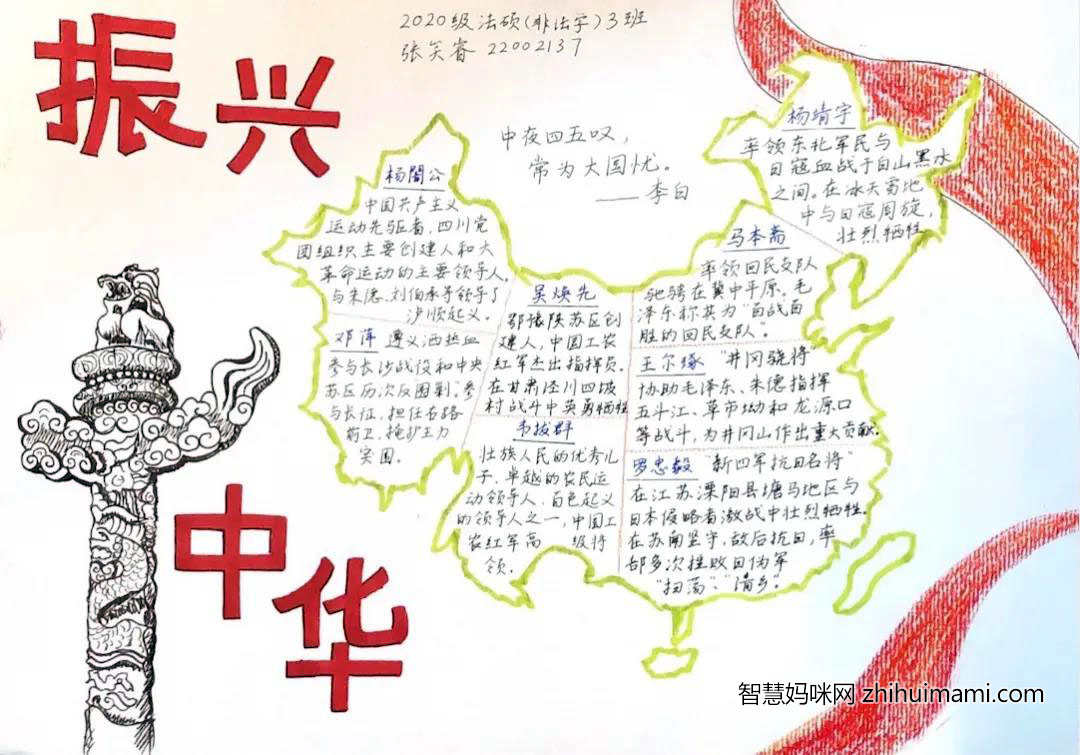 2020级法硕(非法学)3班
张笑睿 22002137
振兴
中夜四五叹，
常为大国忧。
——李白
杨靖宇
率领东北军民与
日寇血战于白山黑水
之间。在冰天雪地
中与日寇周旋，
壮烈牺牲
杨闇公
中国共产主义
运动先驱者，四川党
团组织主要创建人和大
革命运动的主要领导人。
与朱德、刘伯承等领导了
泸顺起义。
马本斋
率领回民支队
驰骋在冀中平原。毛
泽东称其为“百战百
胜的回民支队”。
吴焕先
鄂豫陕苏区创
建人，中国工农
红军杰出指挥员。
在甘肃泾川四坡
村战斗中英勇牺牲
邓萍 遵义洒热血
参与长沙战役和中央
苏区历次反围剿。参
与长征，担任右路
前卫，掩护主力
突围。
王尔琢 “井冈骁将”
协助毛泽东、朱德指挥
五斗江、草市坳和龙源口
等战斗，为井冈山作出重大贡献。
韦拔群
壮族人民的优秀儿
子、卓越的农民运
动领导人、百色起义
的领导人之一，中国工
农红军高 级将
领.
罗忠毅 “新四军抗日名将”
在江苏溧阳县塘马地区与
日本侵略者激战中壮烈牺牲。
在苏南坚守，敌后抗日，率
部多次挫败日伪军
“扫荡”、“清乡”.
中华
智慧妈咪网 zhihuimami.com